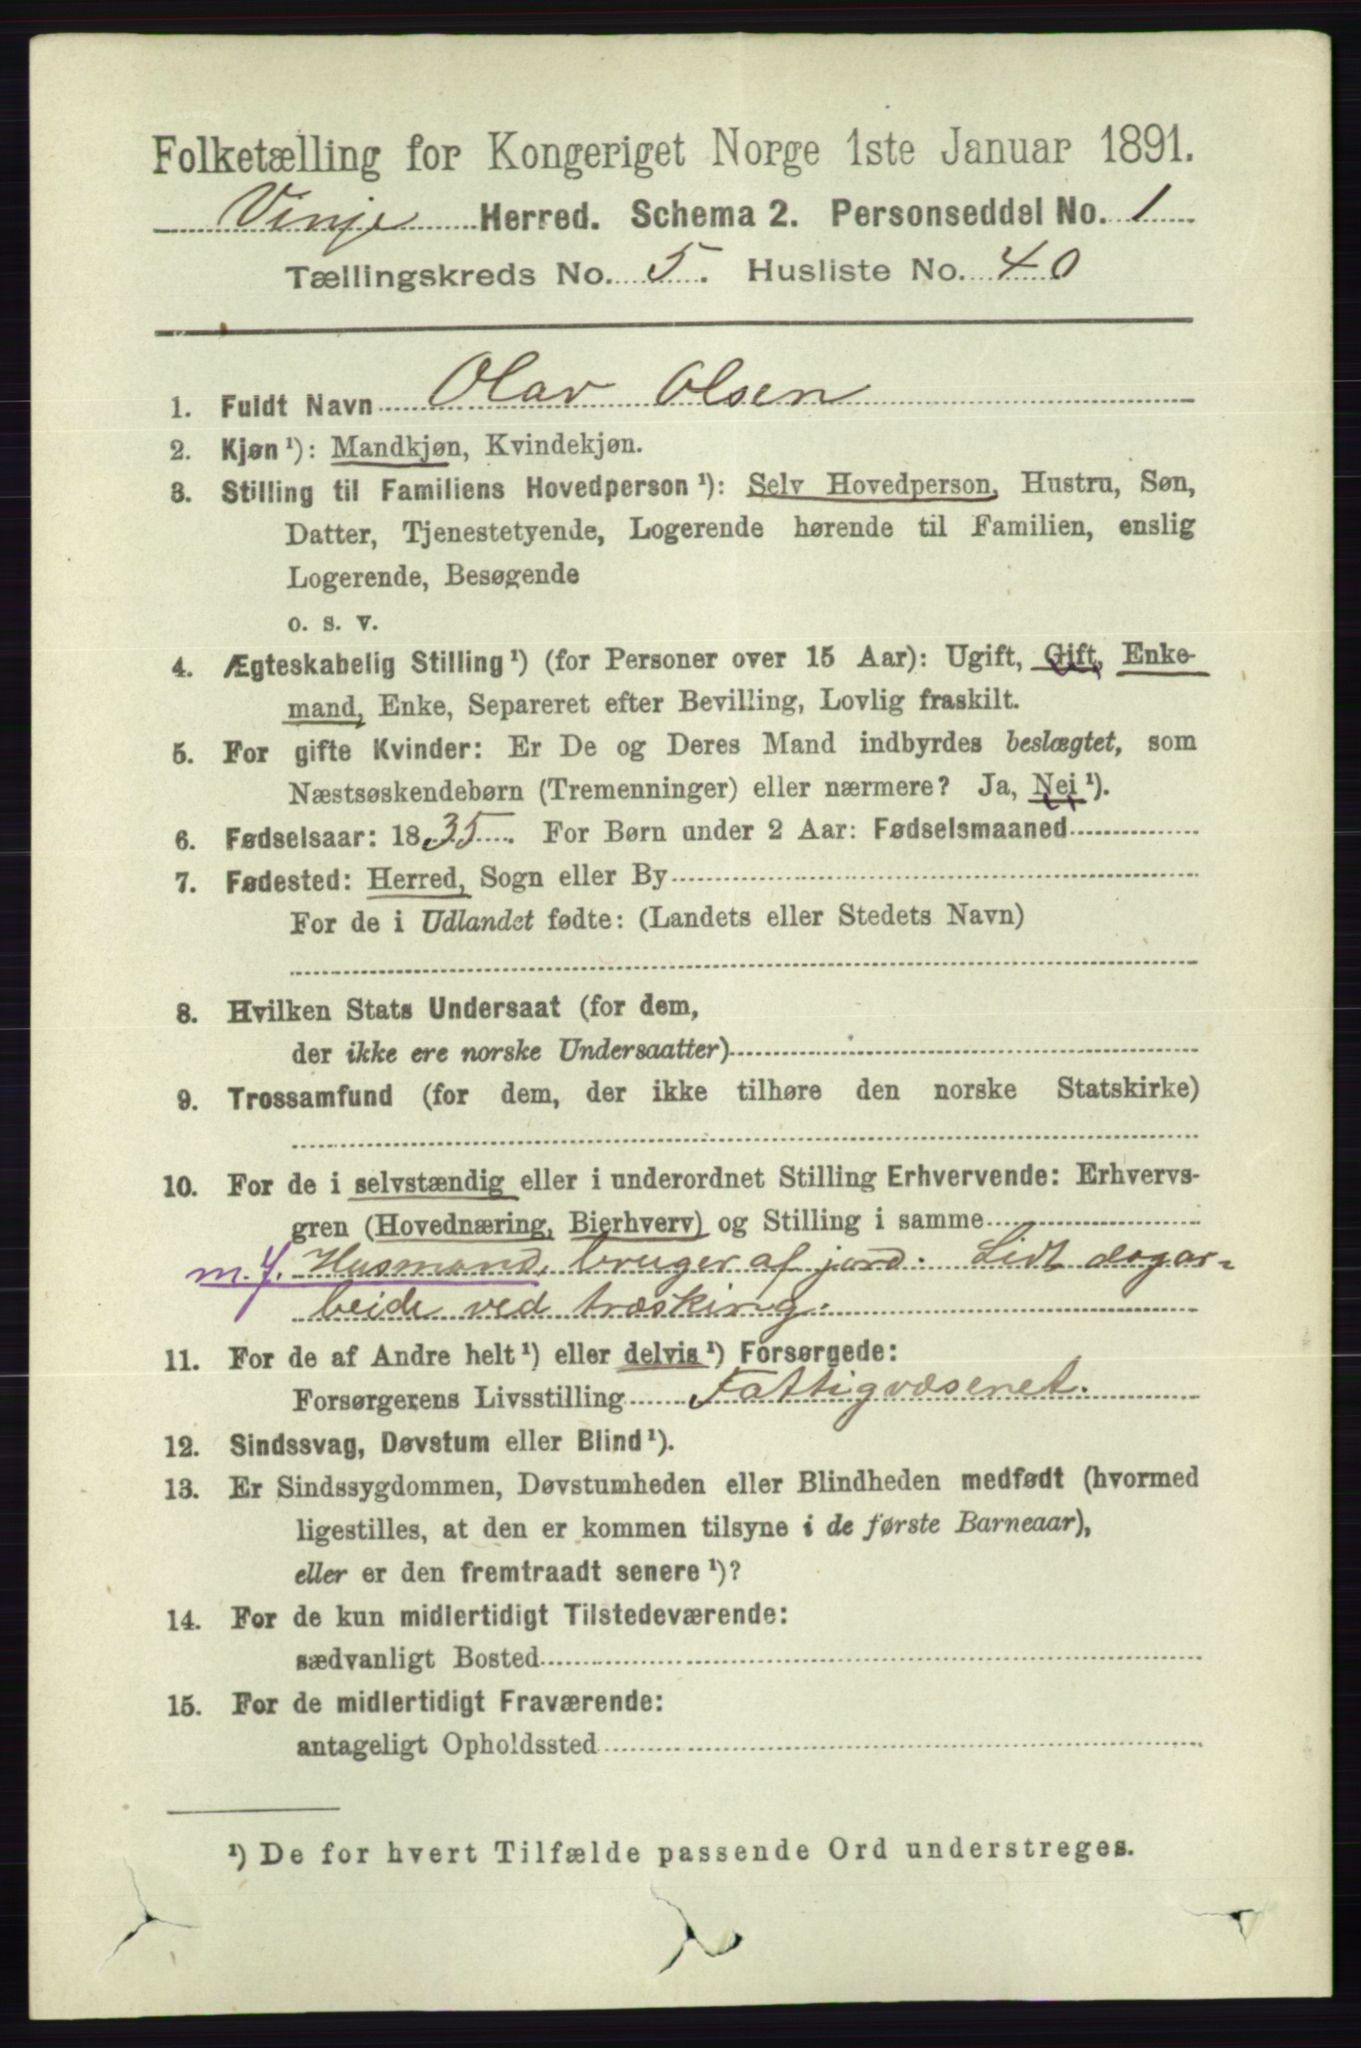 Folketælling for Kongeriget Norge 1ste Januar 1891.
Vinje Herred. Schema 2. Personseddel No. 1
Tællingskreds No. 5. Husliste No. 40
1. Fuldt Navn Olav Olsen
2. Kjøn ¹): Mandkjøn, Kvindekjøn.
3. Stilling til Familiens Hovedperson ¹): Selv Hovedperson, Hustru, Søn,
Datter, Tjenestetyende, Logerende hørende til Familien, enslig
Logerende, Besøgende
o. s. v.
4. Ægteskabelig Stilling ¹) (for Personer over 15 Aar): Ugift, Gift, Enke-
mand, Enke, Separeret efter Bevilling, Lovlig fraskilt.
5. For gifte Kvinder: Er De og Deres Mand indbyrdes beslægtet, som
Næstsøskendebørn (Tremenninger) eller nærmere? Ja, Nei ¹).
6. Fødselsaar: 1835. For Børn under 2 Aar: Fødselsmaaned
7. Fødested: Herred, Sogn eller By
For de i Udlandet fødte: (Landets eller Stedets Navn)
8. Hvilken Stats Undersaat (for dem,
der ikke ere norske Undersaatter)
9. Trossamfund (for dem, der ikke tilhøre den norske Statskirke)
10. For de i selvstændig eller i underordnet Stilling Erhvervende: Erhvervs-
gren (Hovednæring, Bierhverv) og Stilling i samme
m. j. Husmand, bruger af jord. Lidt dagar-
beide ved træsking.
11. For de af Andre helt ¹) eller delvis ¹) Forsørgede:
Forsørgerens Livsstilling Fattigvæsenet.
12. Sindssvag, Døvstum eller Blind ¹).
13. Er Sindssygdommen, Døvstumheden eller Blindheden medfødt (hvormed
ligestilles, at den er kommen tilsyne i de første Barneaar),
eller er den fremtraadt senere ¹)?
14. For de kun midlertidigt Tilstedeværende:
sædvanligt Bosted
15. For de midlertidigt Fraværende:
antageligt Opholdssted
¹) De for hvert Tilfælde passende Ord understreges.